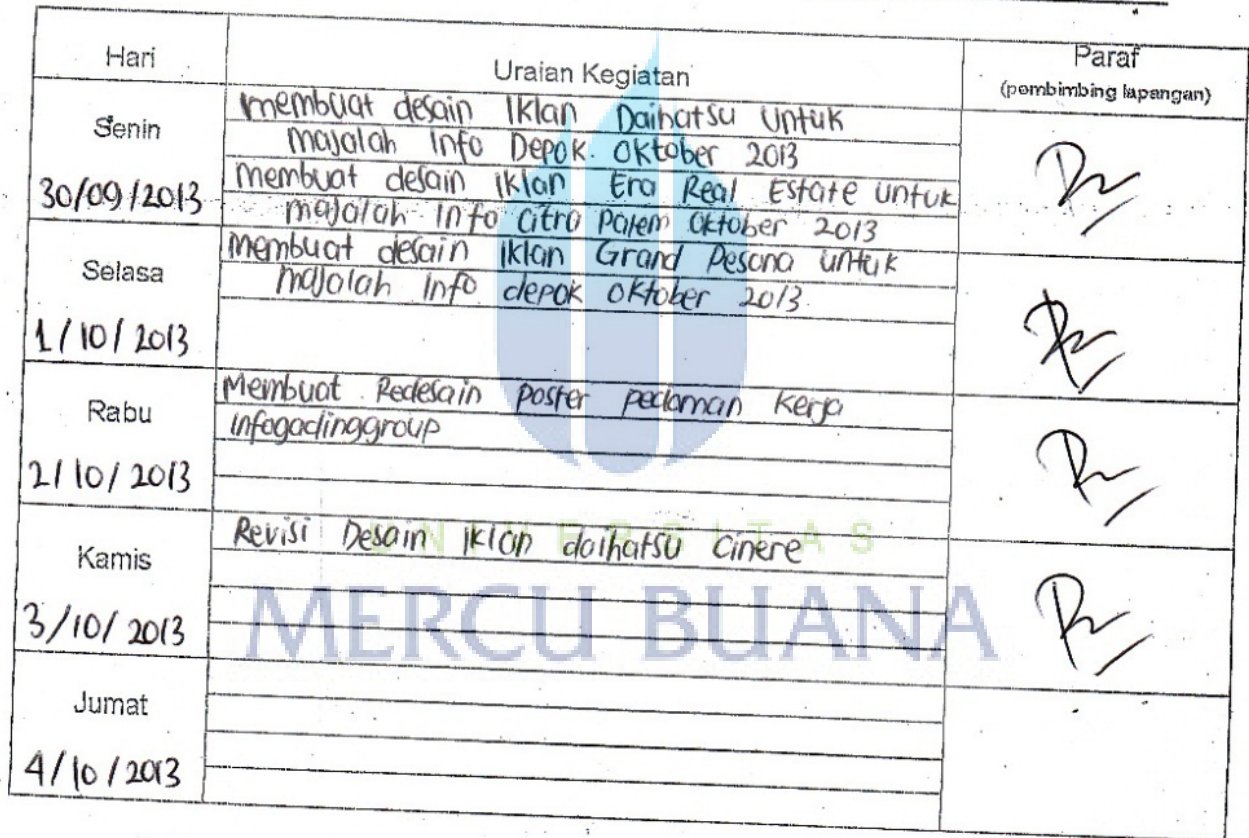 Hari Uraian Kegiatan Paraf
(pembimbing lapangan)
Senin
30/09/2013
membuat desain Iklan Daihatsu untuk
majalah Info Depok. Oktober 2013
membuat desain iklan Era Real Estate untuk
majalah info citra Palem Oktober 2013
Selasa
1/10/2013
membuat desain iklan Grand Pesona untuk
majalah info depok oktober 2013.
Rabu
2/10/2013
Membuat Redesain poster pedoman kerja
infogadinggroup
Kamis
3/10/2013
Revisi Desain iklan daihatsu cinere
Jumat
4/10/2013
UNIVERSITAS
MERCU BUANA